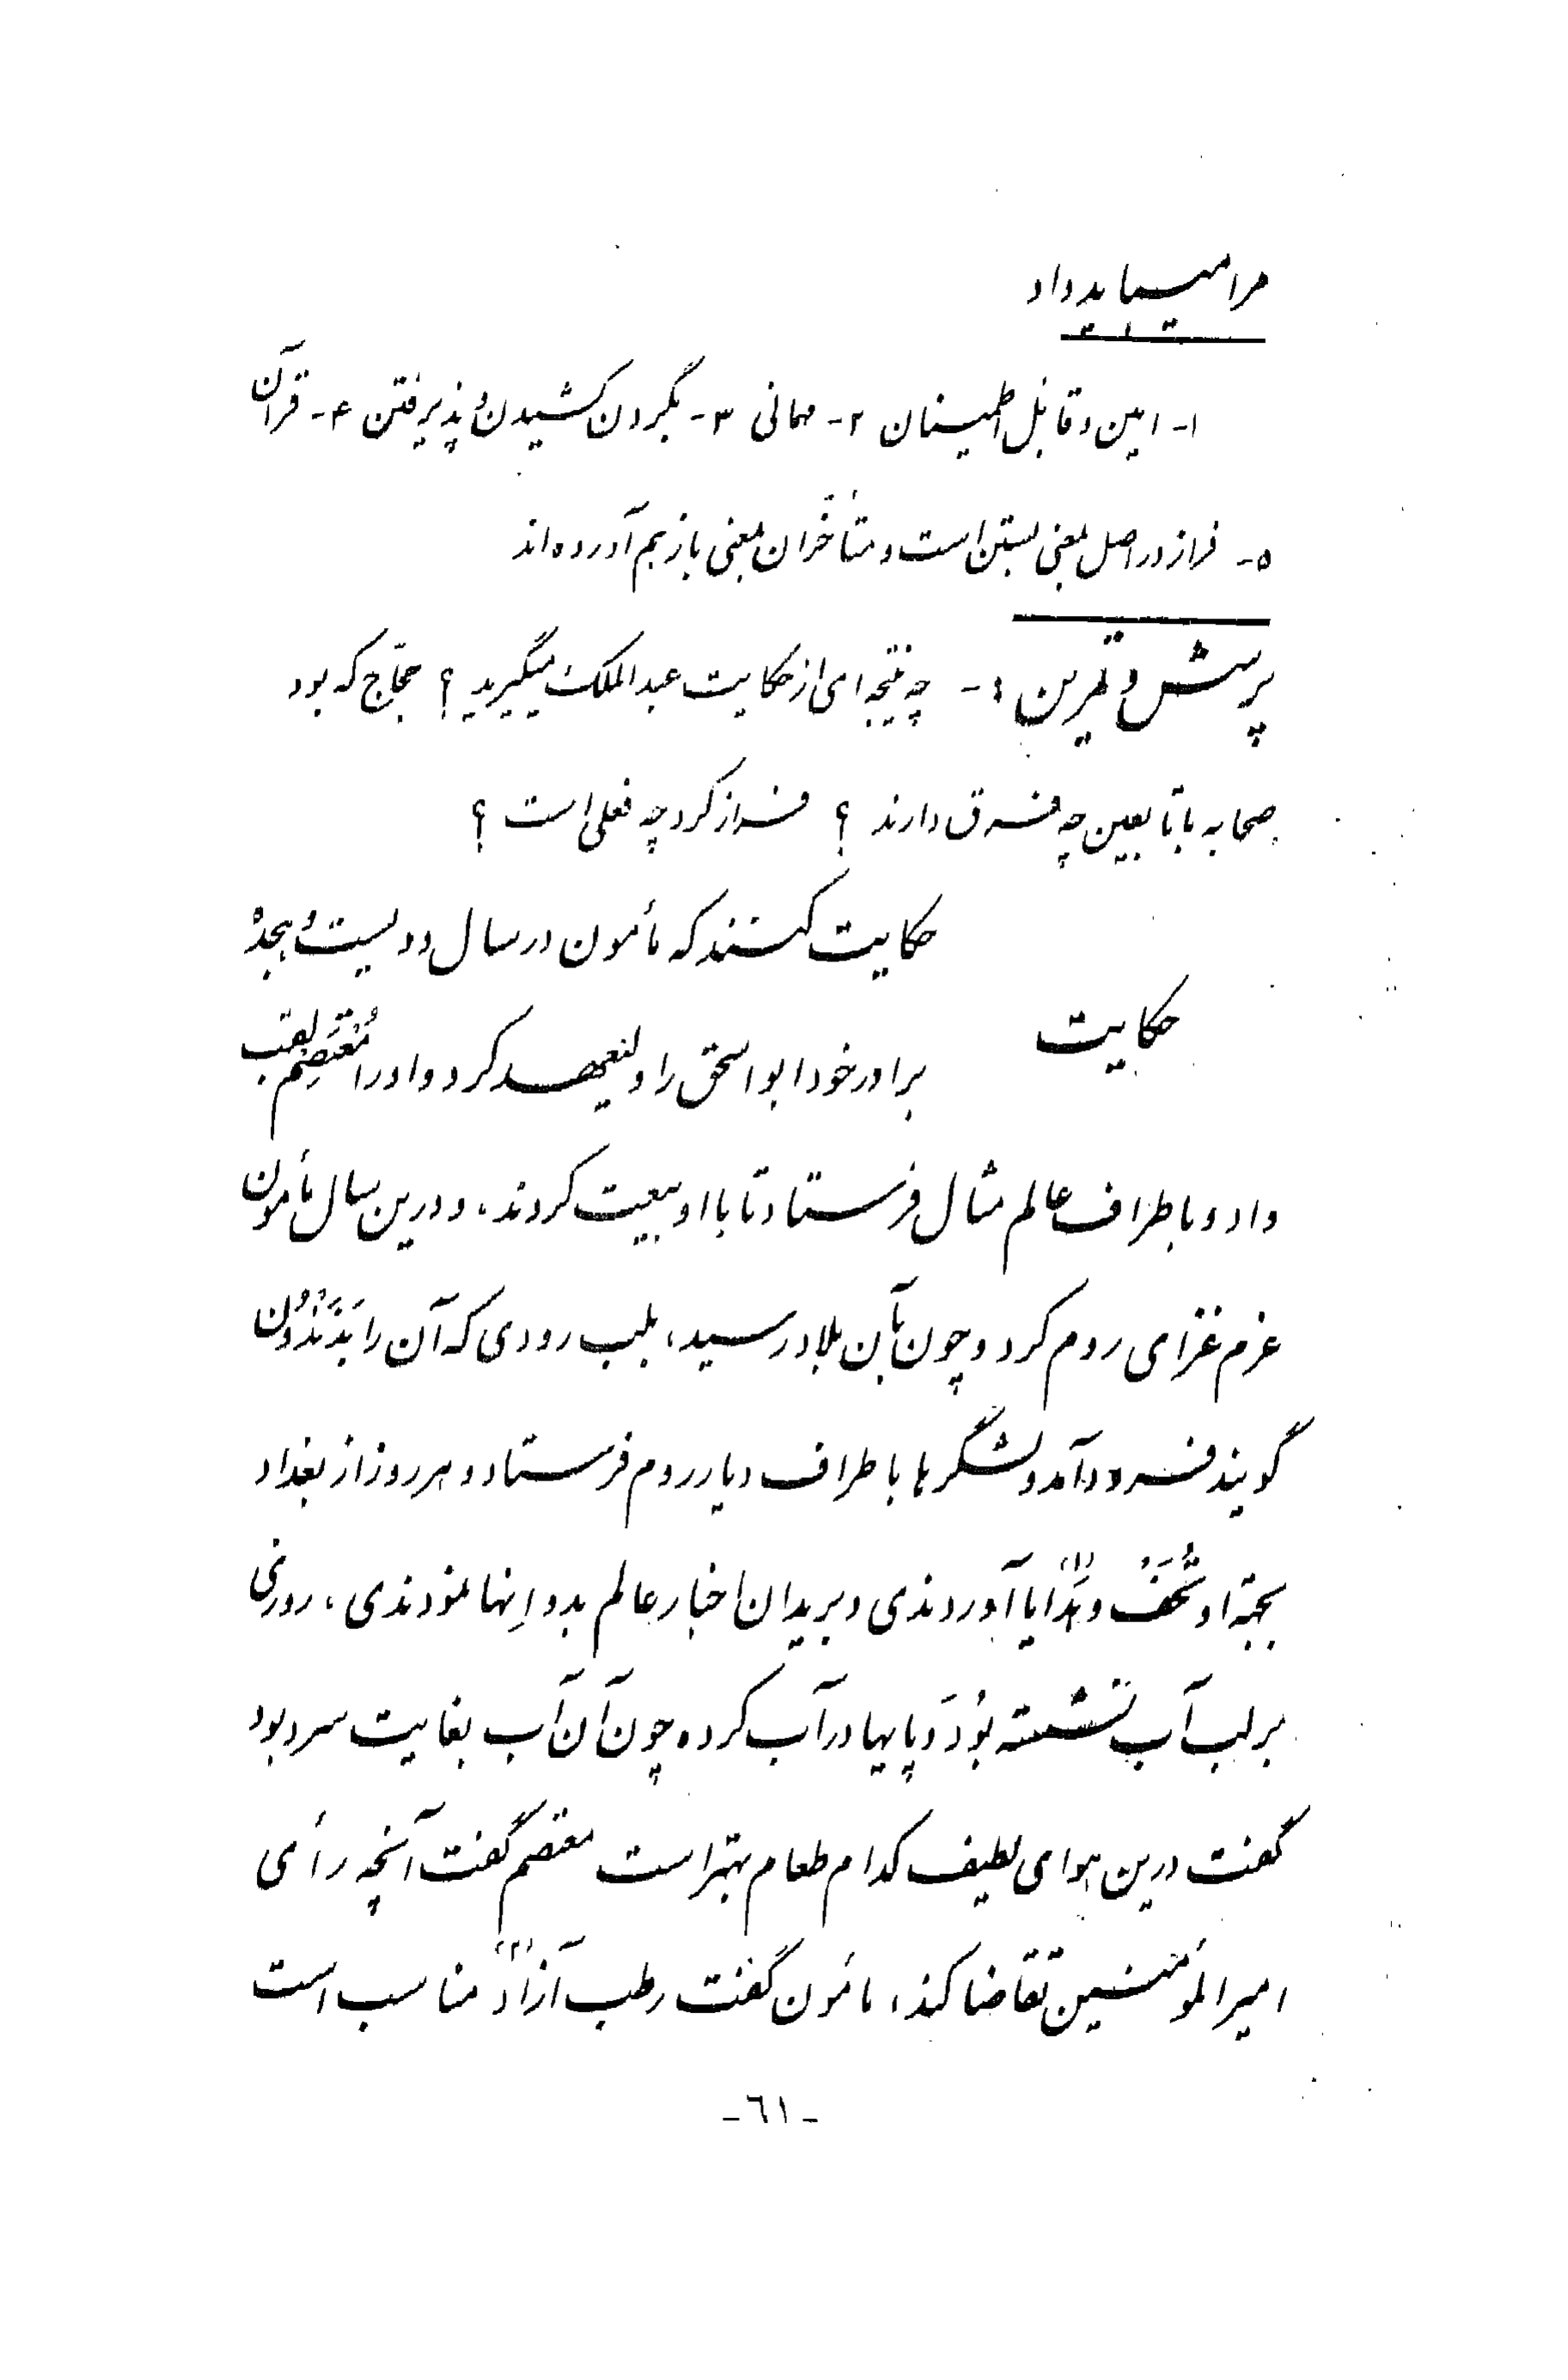 مرا میبایـد داد
۱- امین و قابل اطمینان ۲- مهمانی ۳- بگردن کشیدن و پذیرفتن ۴- قرآن
۵- فراز در اصل بمعنی بستن است و متأخّران بمعنی باز هم آورده‌اند
پرسش و تمرین : - چه نتیجه‌ای از حکایت عبدالملک میگیرید ؟ حجّاج که بود
صحابه با تابعین چه فرق دارند ؟ فراز کرد چه فعلی است ؟
حکایت کنند که مأمون در سال دویست و هجده
حکایت
برادر خود ابو اسحق را ولیعهد کرد و او را مُعْتَصِم لقب
داد و باطراف عالم مثال فرستاد تا با او بیعت کردند، و درین سال مأمون
عزم غزای روم کرد و چون بآن بلاد رسید، بلب رودی که آن را بَذَنْدُون
گویند فرود آمد و لشگرها باطراف دیار روم فرستاد و هر روز از بغداد
بجهة او تُحَفْ و هَدایا (۱) آوردندی و بریدان اخبار عالم بدو اِنها نمودندی، روزی
بر لب آب نشسته بُوَد و پایها در آب کرده چون آن آب بغایت سرد بود
گفت درین هوای لطیف کدام طعام بهتر است معتصم گفت آنچه رأی
امیرالمؤمنین تقاضا کند، مأمون گفت رطب آزاد (۲) مناسب است
-٦١-